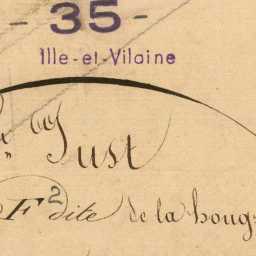 - 35 -
Ille-et-Vilaine
Just
F 2 dite de la houg